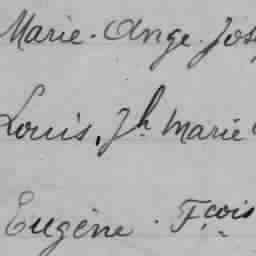 Marie. Ange. Jos
Louis, Jh Marie
Eugène. Fcois